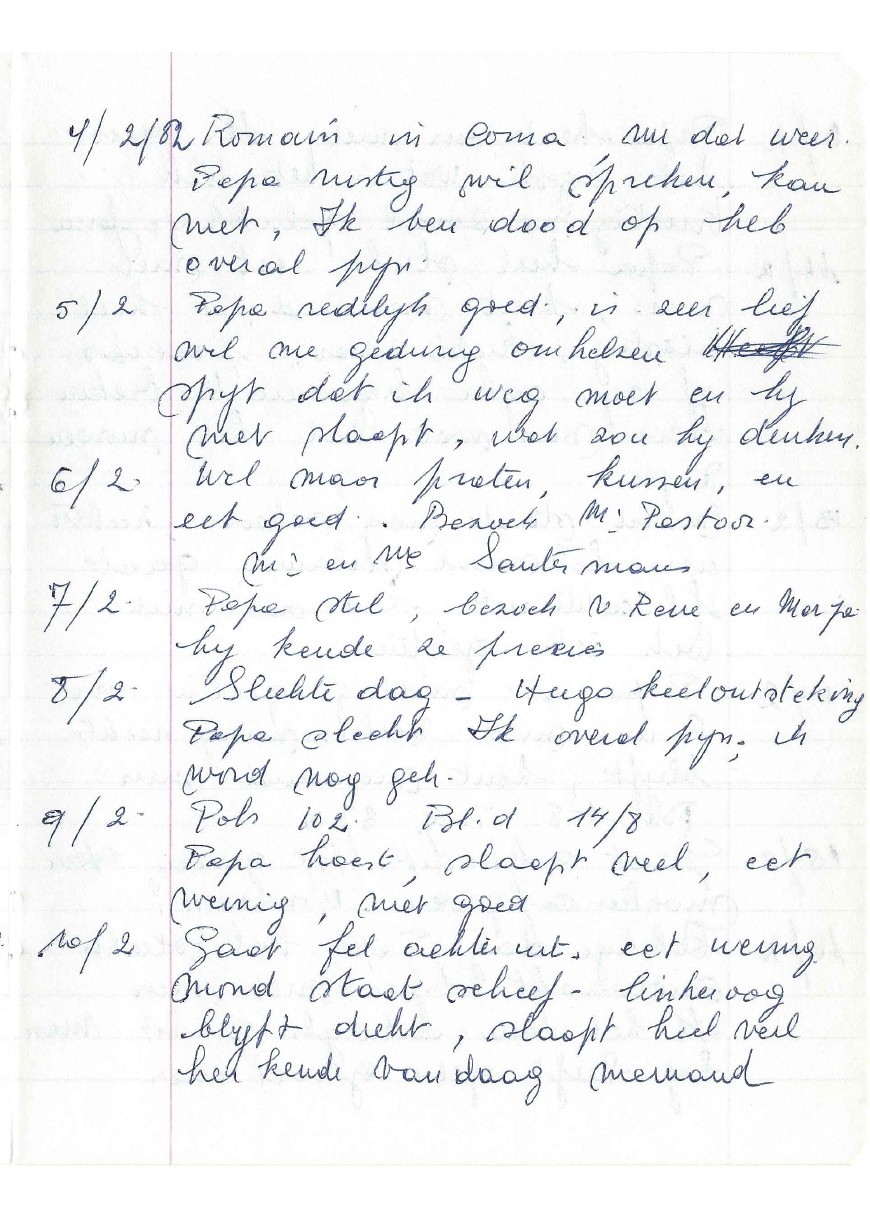 4/2/82 Romain in Coma, nu dat weer.
Papa rustig wil spreken, kan
niet, Ik ben dood op heb
overal pyn
5/2 Papa redelyk goed, is zeer lief
wil me gedurig omhelzen
spyt dat ik weg moet en hy
niet slaapt, wat zou hy denken.
6/2 Wil maar praten, kussen, en
eet goed. Bezoek Mr Pastoor
Mr en Me Santermans
7/2 Papa stil, bezoek v. Rene en
hy kende ze precies
8/2 Slechte dag - Hugo keelontsteking
Papa slecht Ik overal pyn, ik
word nog gek.
9/2 Pols 102. Bl.d 14/8
Papa hoest, slaapt veel, eet
weinig, niet goed
10/2 Gaat fel achteruit. eet weinig
mond staat scheef - linkeroog
blyft dicht, slaapt heel veel
her kende vandaag niemand